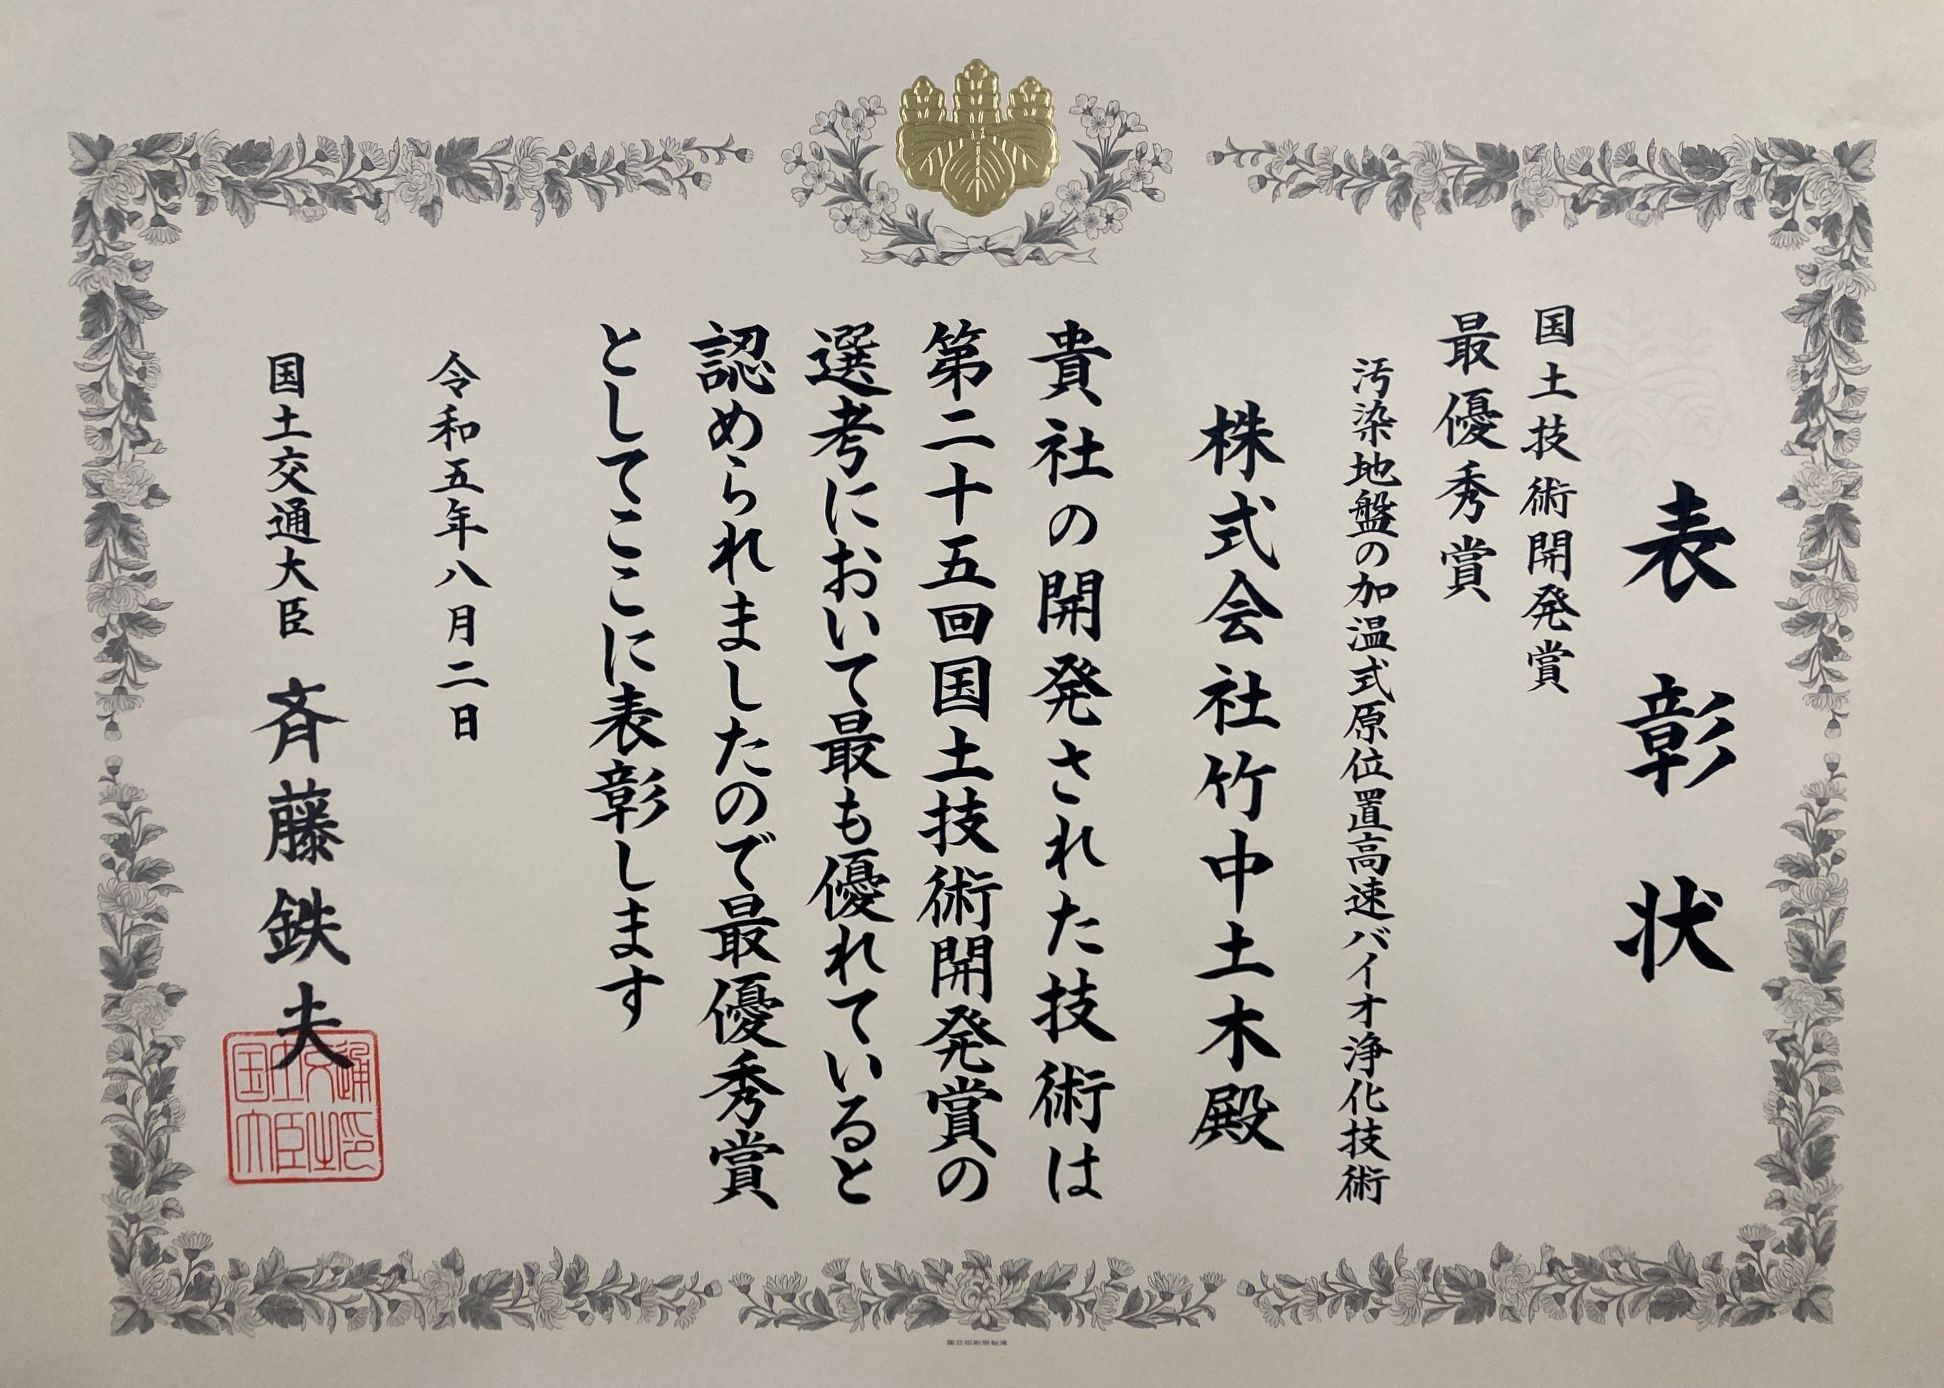 表彰状
国土技術開発賞
最優秀賞
汚染地盤の加温式原位置高速バイオ浄化技術
株式会社竹中土木殿
貴社の開発された技術は
第二十五回国土技術開発賞の
選考において最も優れていると
認められましたので最優秀賞
としてここに表彰します
令和五年八月二日
国土交通大臣 斉藤鉄夫
国土交通大臣之印